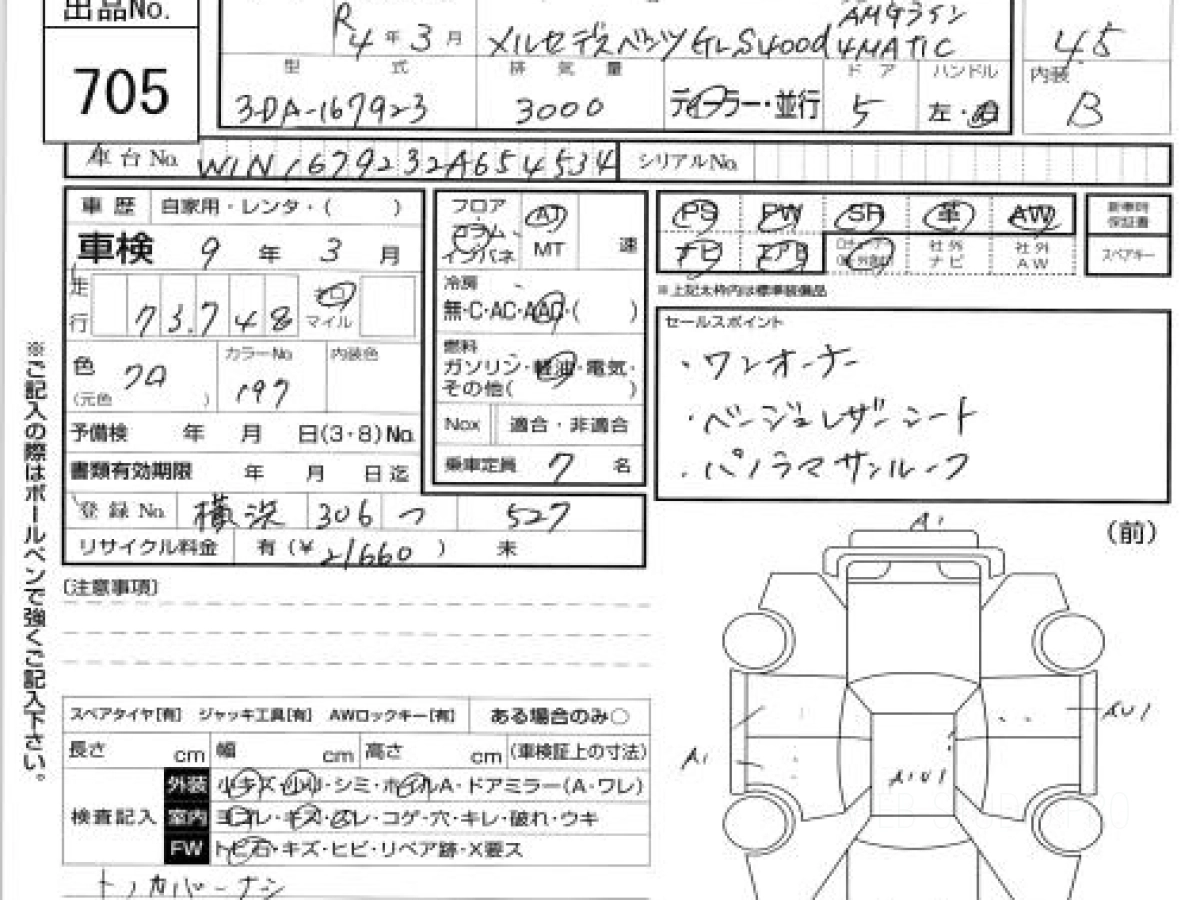 出品No.
705
R 4 年 3 月
メルセデスベンツ GLS400d
AMGライン
4MATIC
4.5
型 式
排 気 量
ド ア
ハンドル
内装
3DA-167923
3000
ディーラー・並行
5
左・右
B
車台No. W1N1679232A654534
シリアルNo.
車 歴 自家用・レンタ・( )
車検 9 年 3 月
走行 73,748 キロ マイル
色 クロ (元色 )
カラーNo. 197
内装色
予備検 年 月 日(3・8)No.
書類有効期限 年 月 日迄
登録No. 横浜 306 つ 527
リサイクル料金 有 (¥ 21660 ) 未
フロア・コラム・インパネ
AT
MT
速
冷房
無・C・AC・AAC・( )
燃料
ガソリン・軽油・電気・
その他( )
Nox 適合・非適合
乗車定員 7 名
PS PW SR 革 AW
ナビ エアB
社外ナビ
社外AW
新車時保証書
スペアキー
※上記太枠内は標準装備品
セールスポイント
・ワンオーナー
・ベージュレザーシート
・パノラマサンルーフ
〔注意事項〕
スペアタイヤ[有] ジャッキ工具[有] AWロックキー[有] ある場合のみ○
長さ cm 幅 cm 高さ cm (車検証上の寸法)
検査記入
外装 小キズ・小凹・シミ・ホイルA・ドアミラー(A・ワレ)
室内 ヨゴレ・キズ・スレ・コゲ・穴・キレ・破れ・ウキ
FW トビ石・キズ・ヒビ・リペア跡・X要ス
トノカバーナシ
※ご記入の際はボールペンで強くご記入下さい。
(前)
A1
AU1
A1
A1U1